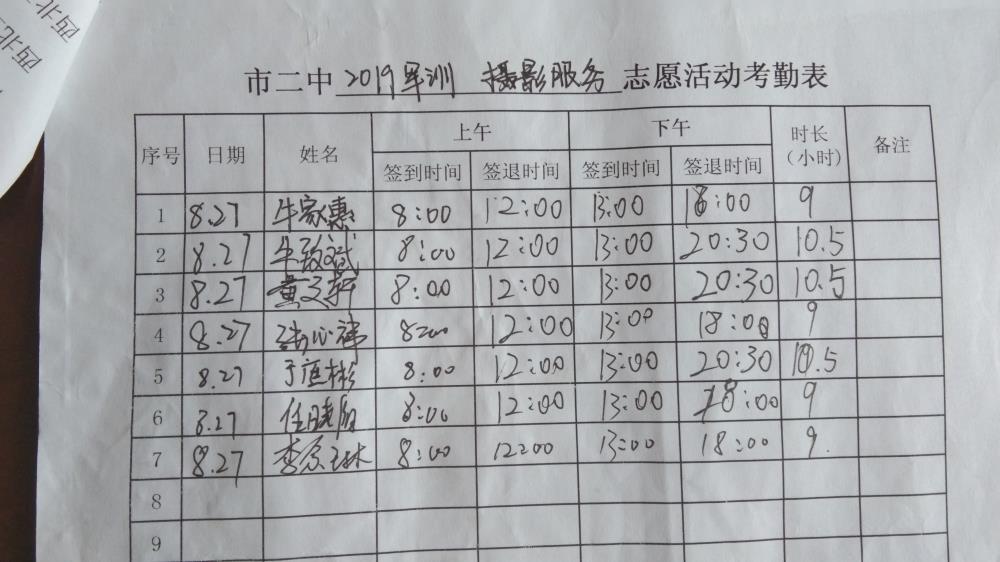 西北
西北
市二中 2019军训 摄影服务 志愿活动考勤表
序号 日期 姓名 上午 下午 时长(小时) 备注
签到时间 签退时间 签到时间 签退时间
1 8.27 牛家惠 8:00 12:00 13:00 18:00 9
2 8.27 牛致斌 8:00 12:00 13:00 20:30 10.5
3 8.27 黄文轩 8:00 12:00 13:00 20:30 10.5
4 8.27 8:00 12:00 13:00 18:00 9
5 8.27 8:00 12:00 13:00 20:30 10.5
6 8.27 8:00 12:00 13:00 18:00 9
7 8.27 8:00 12:00 13:00 18:00 9.
8
9